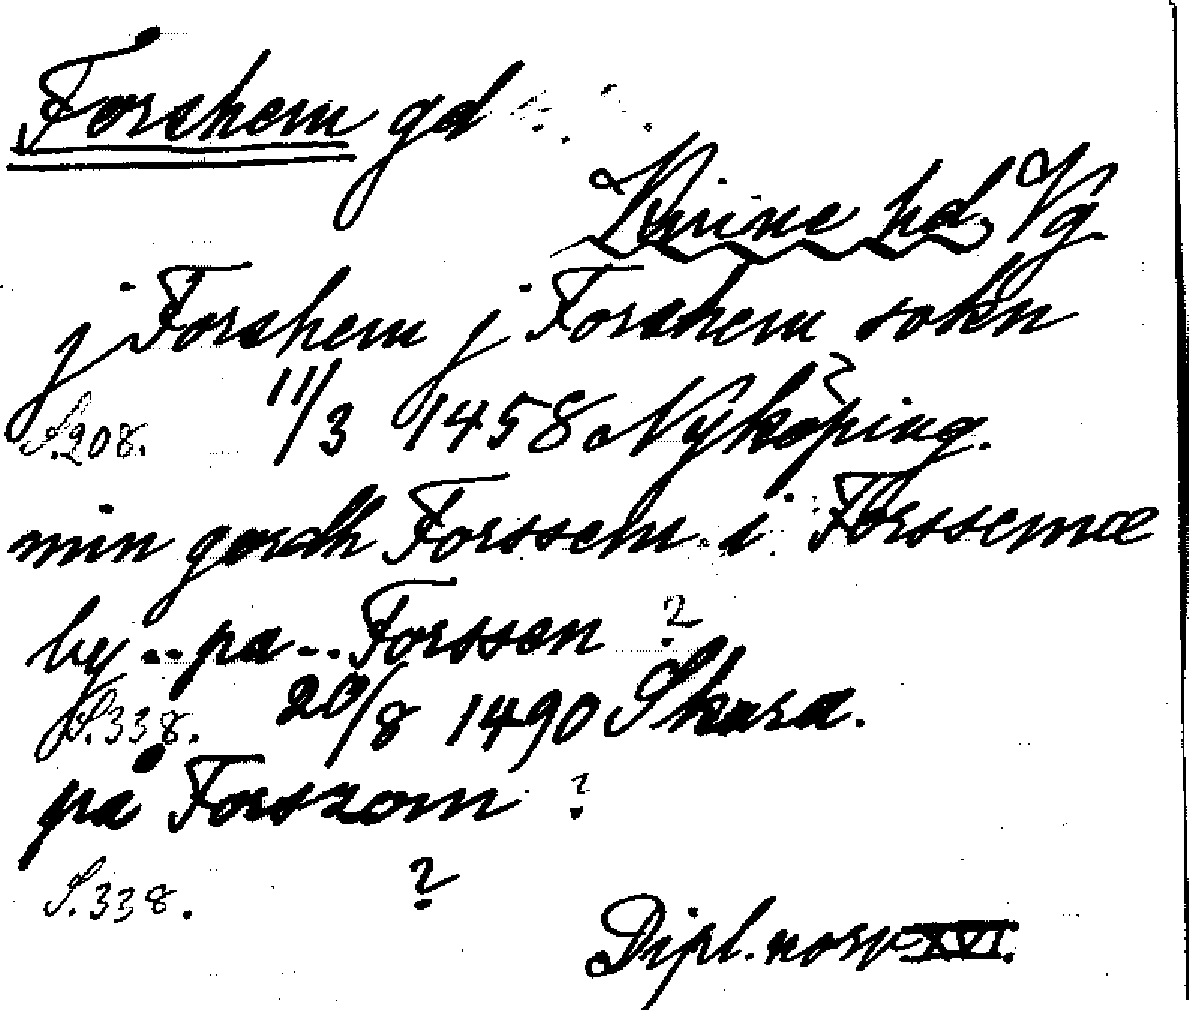 Forshem gd
Kinne hd. Vg
j Forshem j Forshem sokn
S.208. 11/3 1458 Nyköping.
min gordh Forssem i Forssemœ
by .. pa .. Forssen ?
S.338. 20/8 1490 Skara.
på Forszom ?
S.338. ?
Dipl. norv XVI.